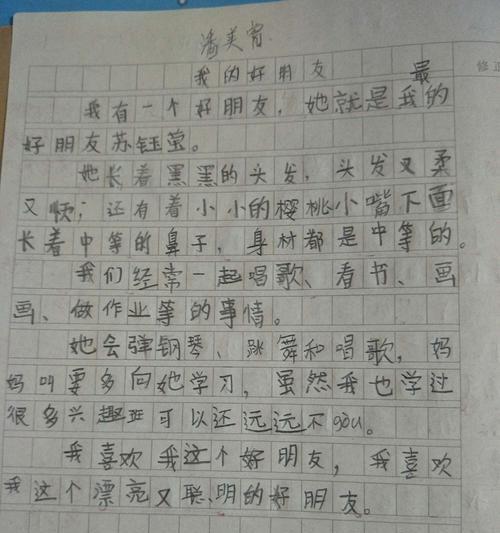 潘美
我的好朋友 最
我有一个好朋友，她就是我的
好朋友苏钰莹。
她长着黑黑的头发，头发又柔
又顺；还有着小小的樱桃小嘴下面
长着中等的鼻子，身材都是中等的。
我们经常一起唱歌、看书、画
画、做作业等的事情。
她会弹钢琴、跳舞和唱歌，妈
妈叫要多向她学习，虽然我也学过
很多兴趣班可以还远远不gòu。
我喜欢我这个好朋友，我喜欢
我这个漂亮又聪明的好朋友。